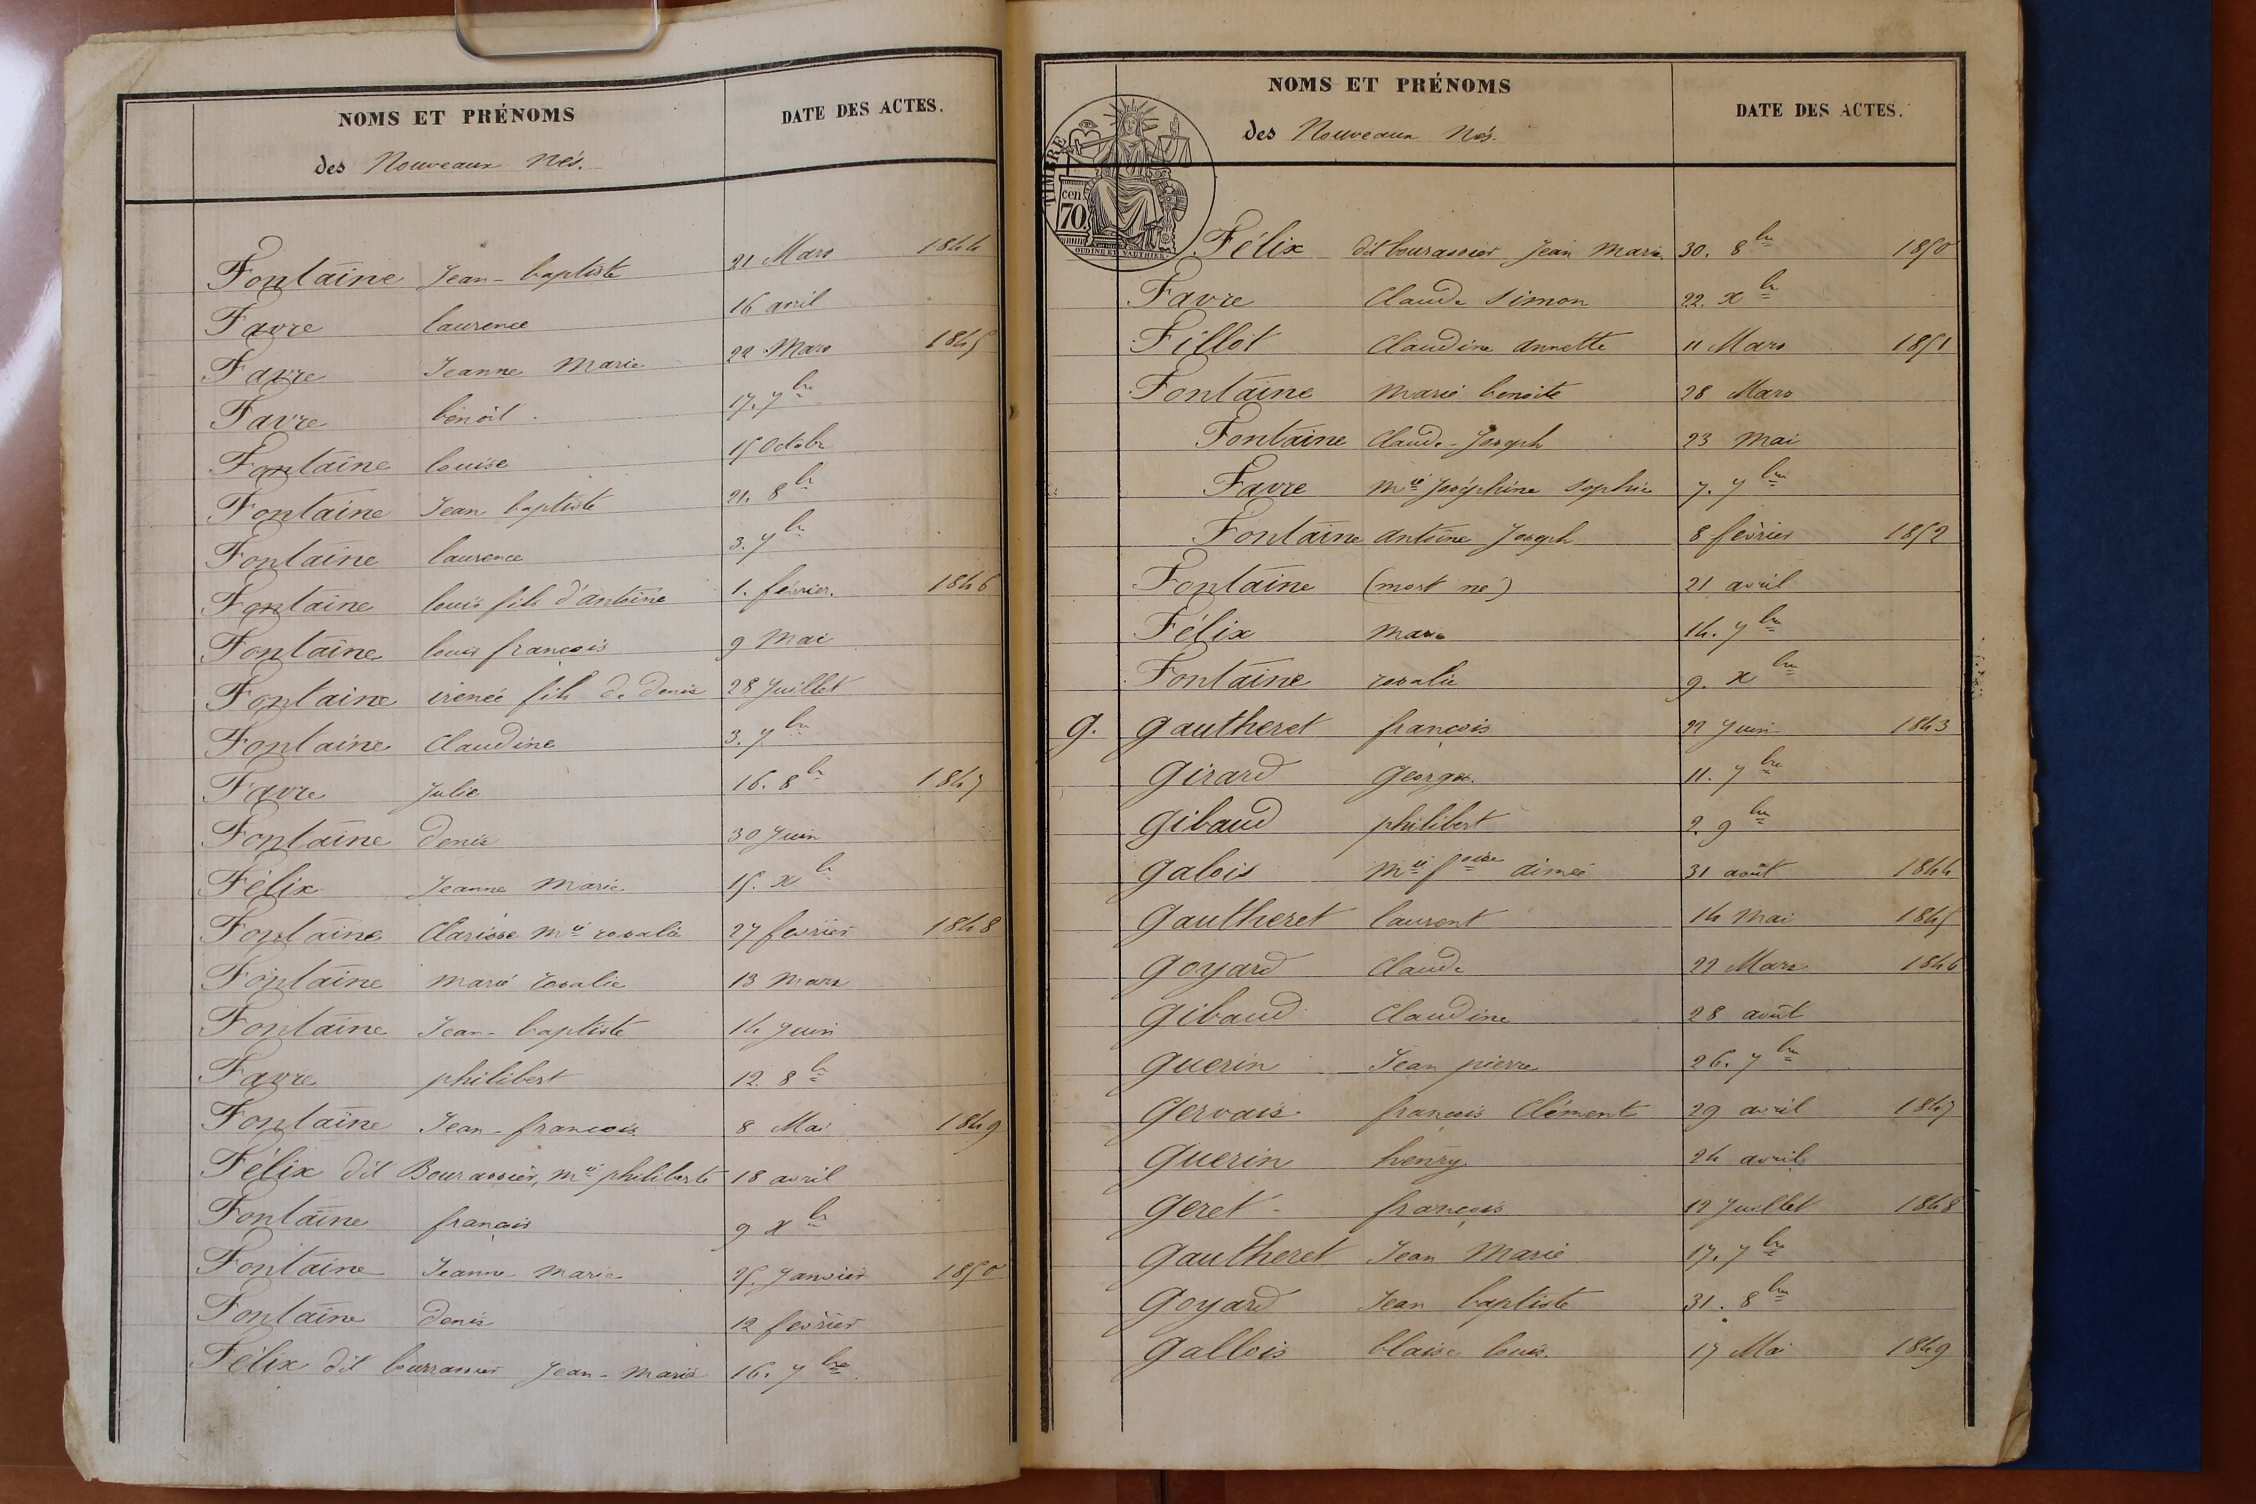 NOMS ET PRÉNOMS
DATE DES ACTES.
des Nouveaux Nés.
Fontaine Jean-baptiste 21 Mars 1844
Favre laurence 16 avril
Favre Jeanne Marie 22 Mars 1845
Favre benoit 17. 7bre
Fontaine louise 15 Octobre
Fontaine Jean baptiste 21. 8bre
Fontaine laurence 3. 7bre
Fontaine louis fils d'antoine 1. février. 1846
Fontaine louis françois 9 Mai
Fontaine irenée fils de denis 28 Juillet
Fontaine Claudine 3. 7bre
Favre Julie 16. 8bre 1847
Fontaine denis 30 Juin
Félix Jeanne Marie 15. xbre
Fontaine Clarisse Mie rosalie 27 fevrier 1848
Fontaine Marie rosalie 13 Mars
Fontaine Jean-baptiste 14 Juin
Favre philibert 12. 8bre
Fontaine Jean-francois 8 Mai 1849
Félix dit Bourassier, Mie philiberte 18 avril
Fontaine françois 9 xbre
Fontaine Jeanne Marie 25. Janvier 1850
Fontaine denis 12 fevrier
Félix dit bourrassier Jean-Marie 16. 7bre
NOMS ET PRÉNOMS
DATE DES ACTES.
des Nouveaux Nés.
TIMBRE
70 cen
OUDINÉ ET VAUTHIER
Félix dit bourassier Jean Marie 30. 8bre 1850
Favre Claude Simon 22. xbre
Fillot Claudine annette 11 Mars 1851
Fontaine Marie benoite 28 Mars
Fontaine Claude-Joseph 23 Mai
Favre Mie Joséphine Sophie 7. 7bre
Fontaine antoine Joseph 8 février 1852
Fontaine (mort né) 21 avril
Félix 14. 7bre
Fontaine rosalie 9. xbre
G. Gautheret françois 22 Juin 1843
Girard George. 11. 7bre
Gibaud philibert 2. 9bre
Galois Mie foise aimée 31 août 1844
Gautheret laurent 14 Mai 1845
Goyard Claude 22 Mars 1846
Gibaud Claudine 28 août
Guerin Jean pierre 26. 7bre
Gervais francois Clément 29 avril 1847
Guerin henry 24 avril
Geret - françois 12 Juillet 1848
Gautheret Jean Marie 17. 7bre
Goyard Jean baptiste 31. 8bre
Gallois blaise louis. 17 Mai 1849